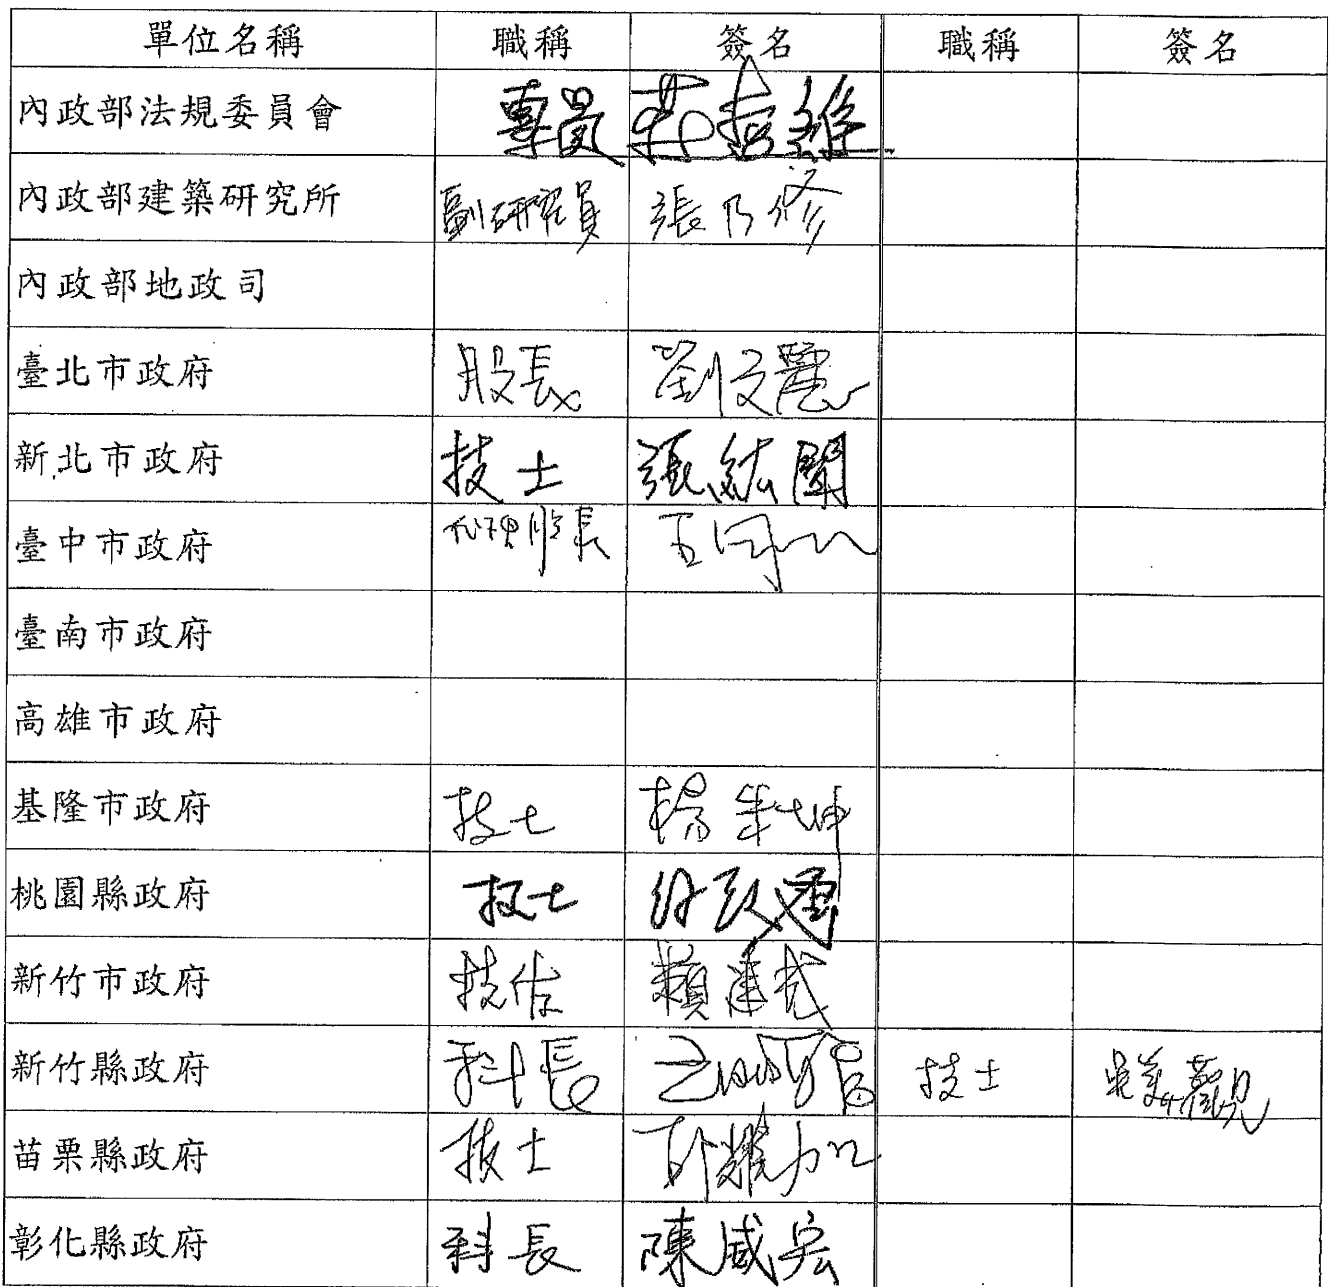 單位名稱 職稱 簽名 職稱 簽名
內政部法規委員會 專員
內政部建築研究所 副研究員 張乃修
內政部地政司
臺北市政府 股長 劉文麗
新北市政府 技士 張紘聞
臺中市政府 代理股長 王
臺南市政府
高雄市政府
基隆市政府 技士 楊 坤
桃園縣政府 技士
新竹市政府 技佐 賴
新竹縣政府 科長 技士 吳美觀
苗栗縣政府 技士
彰化縣政府 科長 陳威宏